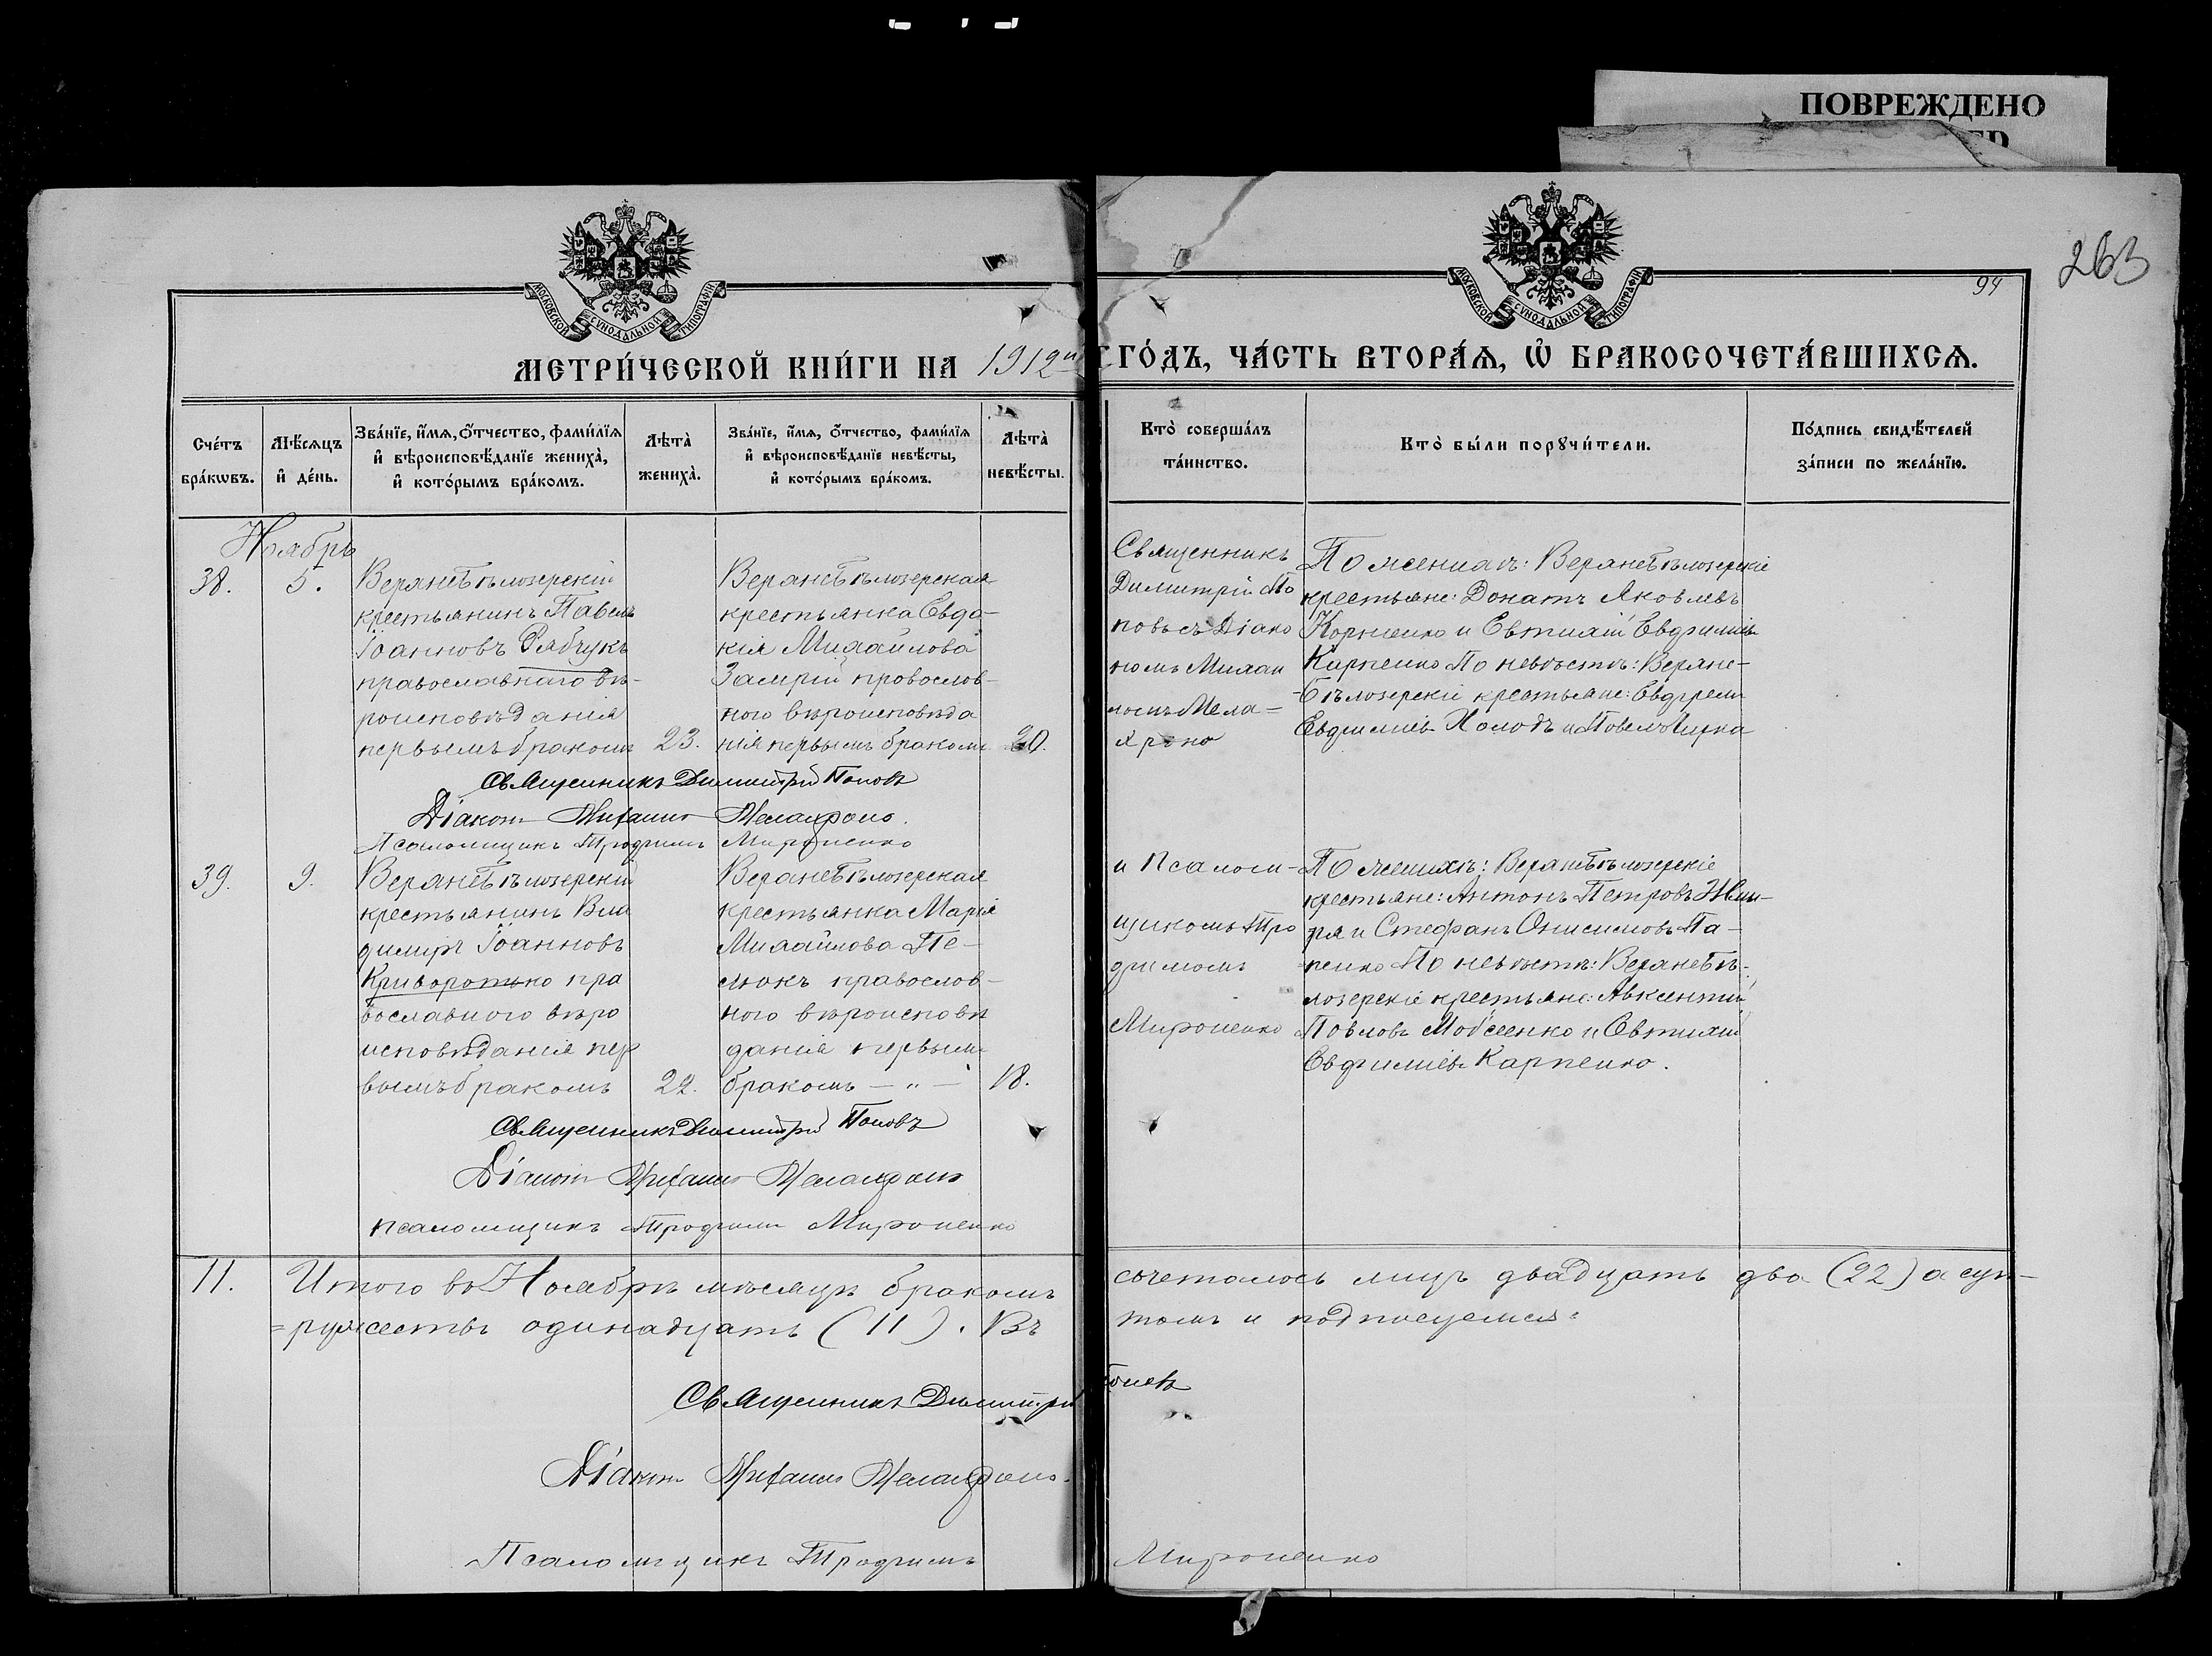 ПОВРЕЖДЕНО
263
94
МОСКОВСКОЙ СѴНОДАЛЬНОЙ ТИПОГРАФІИ
МОСКОВСКОЙ СѴНОДАЛЬНОЙ ТИПОГРАФІИ
МЕТРИ́ЧЕСКОЙ КНИ́ГИ НА 1912й ГО́ДЪ, ЧА́СТЬ ВТОРА́Ѧ, Ѽ БРАКОСОЧЕТА́ВШИХСѦ.
Сче́тъ бра́кѡвъ.
Мѣ́сѧцъ и҆ де́нь.
Зва́нїе, и҆́мѧ, ѻ҆́тчество, фами́лїѧ и҆ вѣроисповѣ́данїе жениха̀, и҆ кото́рымъ бра́комъ.
Лѣта̀ жениха̀.
Зва́нїе, и҆́мѧ, ѻ҆́тчество, фами́лїѧ и҆ вѣроисповѣ́данїе невѣ́сты, и҆ кото́рымъ бра́комъ.
Лѣта̀ невѣ́сты.
Кто̀ соверша́лъ та́инство.
Кто̀ бы́ли порꙋчи́тели.
По́дпись свидѣ́телей за́писи по жела́нїю.
Ноябрь
38.
5.
Верхнебѣлозерскій
крестьянинъ Павелъ
Іоанновъ Рябчукъ
православнаго вѣ-
роисповѣданія
первымъ бракомъ
23.
Верхнебѣлозерская
крестьянка Евдо-
кія Михайлова
провослов-
ного вѣроисповѣда
нія первымъ бракомъ
20.
Священникъ
Димитрій По
повъ съ Діако
номъ Михаи
ломъ Мела=
хроно
По женихѣ: Верхнебѣлозерскіе
крестьяне: Донатъ Яковлевъ
Корниенко и Евтихій Евфиміевъ
Карпенко По невѣстѣ: Верхне-
-бѣлозерскіе крестьяне: Евфрем
Евфиміевъ Холодъ и Повелъ
Священникъ Димитрій Поповъ
Діаконъ Михаилъ Мелахроно.
Псаломщикъ Трофимъ Мироненко
39.
9.
Верхнебѣлозерскій
крестьянинъ Вла
димиръ Іоанновъ
Криворотько пра
вославного вѣро
исповѣданія пер
вымъ бракомъ
22.
Верхнебѣлозерская
крестьянка Марія
Михайлова Пе-
люхъ провослов-
ного вѣроисповѣ
данія первымъ
бракомъ — „ —
18.
и Псалом-
щикомъ Тро
фимомъ
Мироненко
По женихѣ: Верхнебѣлозерскіе
крестьяне: Антонъ Петровъ Жми-
ря и Стефанъ Онисимовъ Па-
пенко По невѣстѣ: Верхнебѣ-
лозерскіе крестьяне: Авксентій
Повловъ Мойсеенко и Евтихій
Евфиміевъ Карпенко.
Священникъ Димитрій Поповъ
Діаконъ Михаилъ Мелахроно
псаломщикъ Трофимъ Мироненко
11. Итого въ Ноябрѣ мѣсяцѣ бракомъ сочеталось лицъ двадцать два (22) а суп-
=ружествъ одинадцать (11). Въ томъ и подписуемся:
Священникъ Димитрій Поповъ
Діаконъ Михаилъ Мелахроно.
Псаломщикъ Трофимъ Мироненко